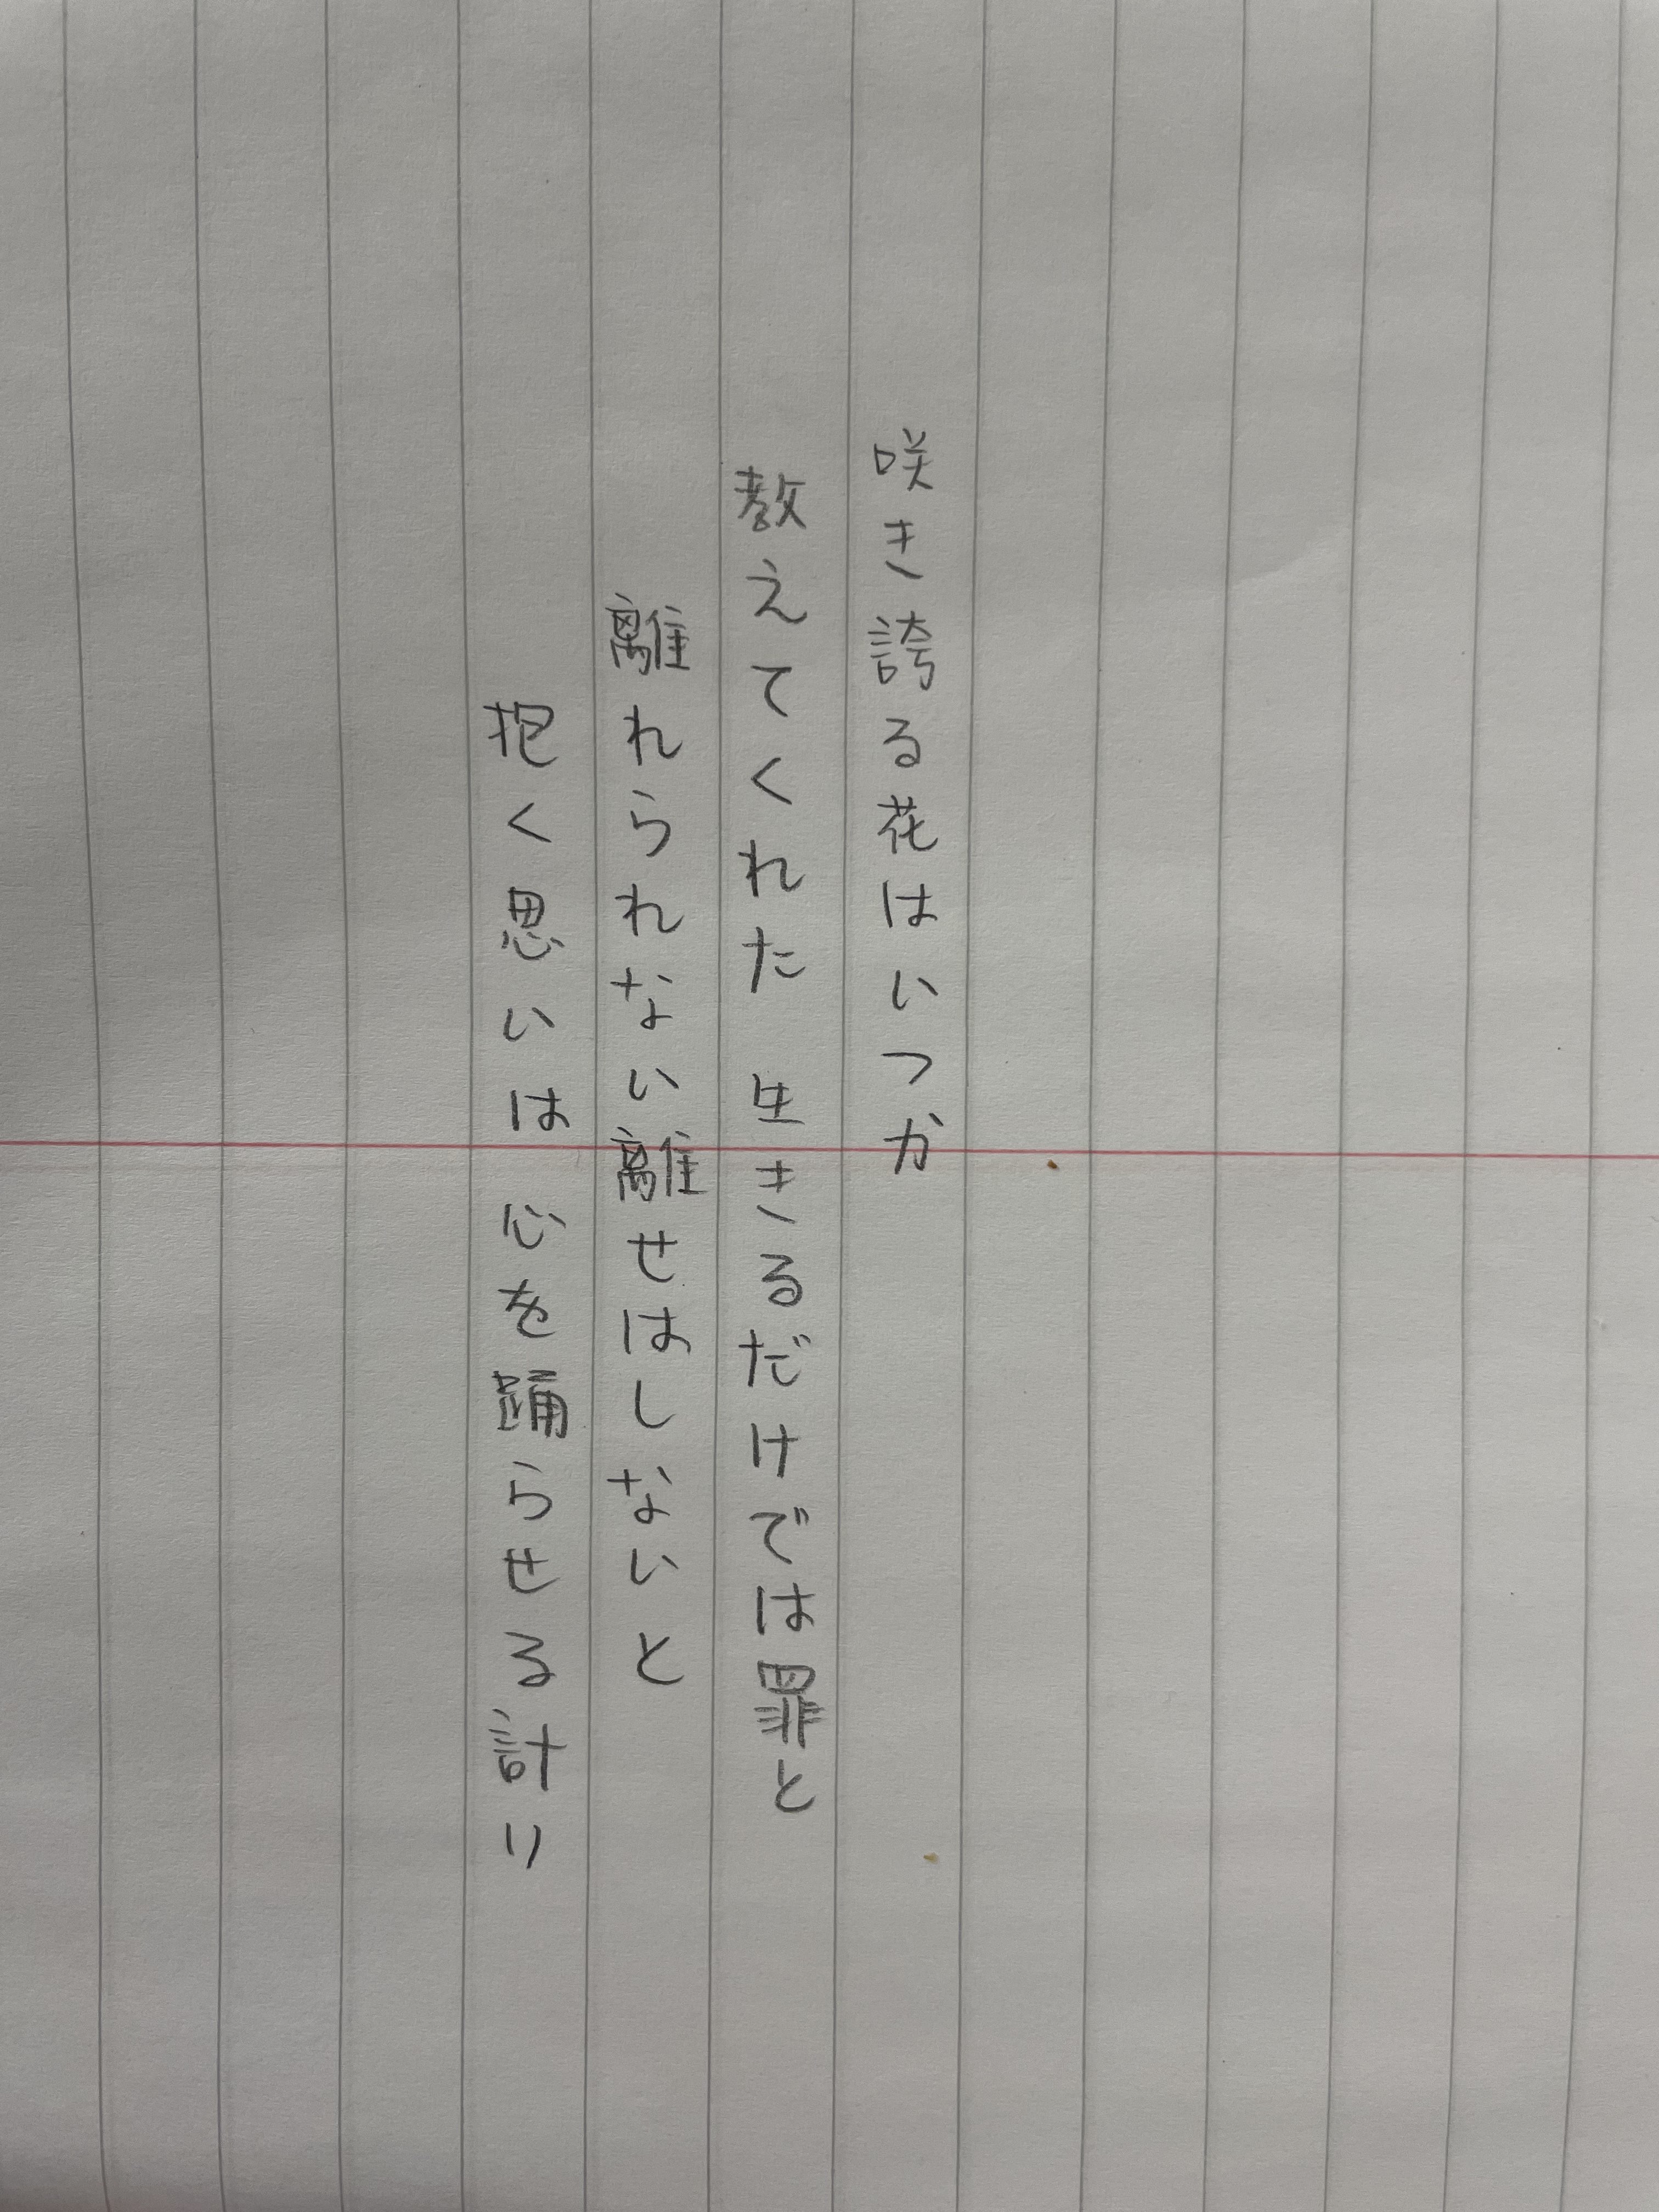 咲き誇る花はいつか
教えてくれた 生きるだけでは罪と
離れられない離せはしないと
抱く思いは 心を踊らせる計り